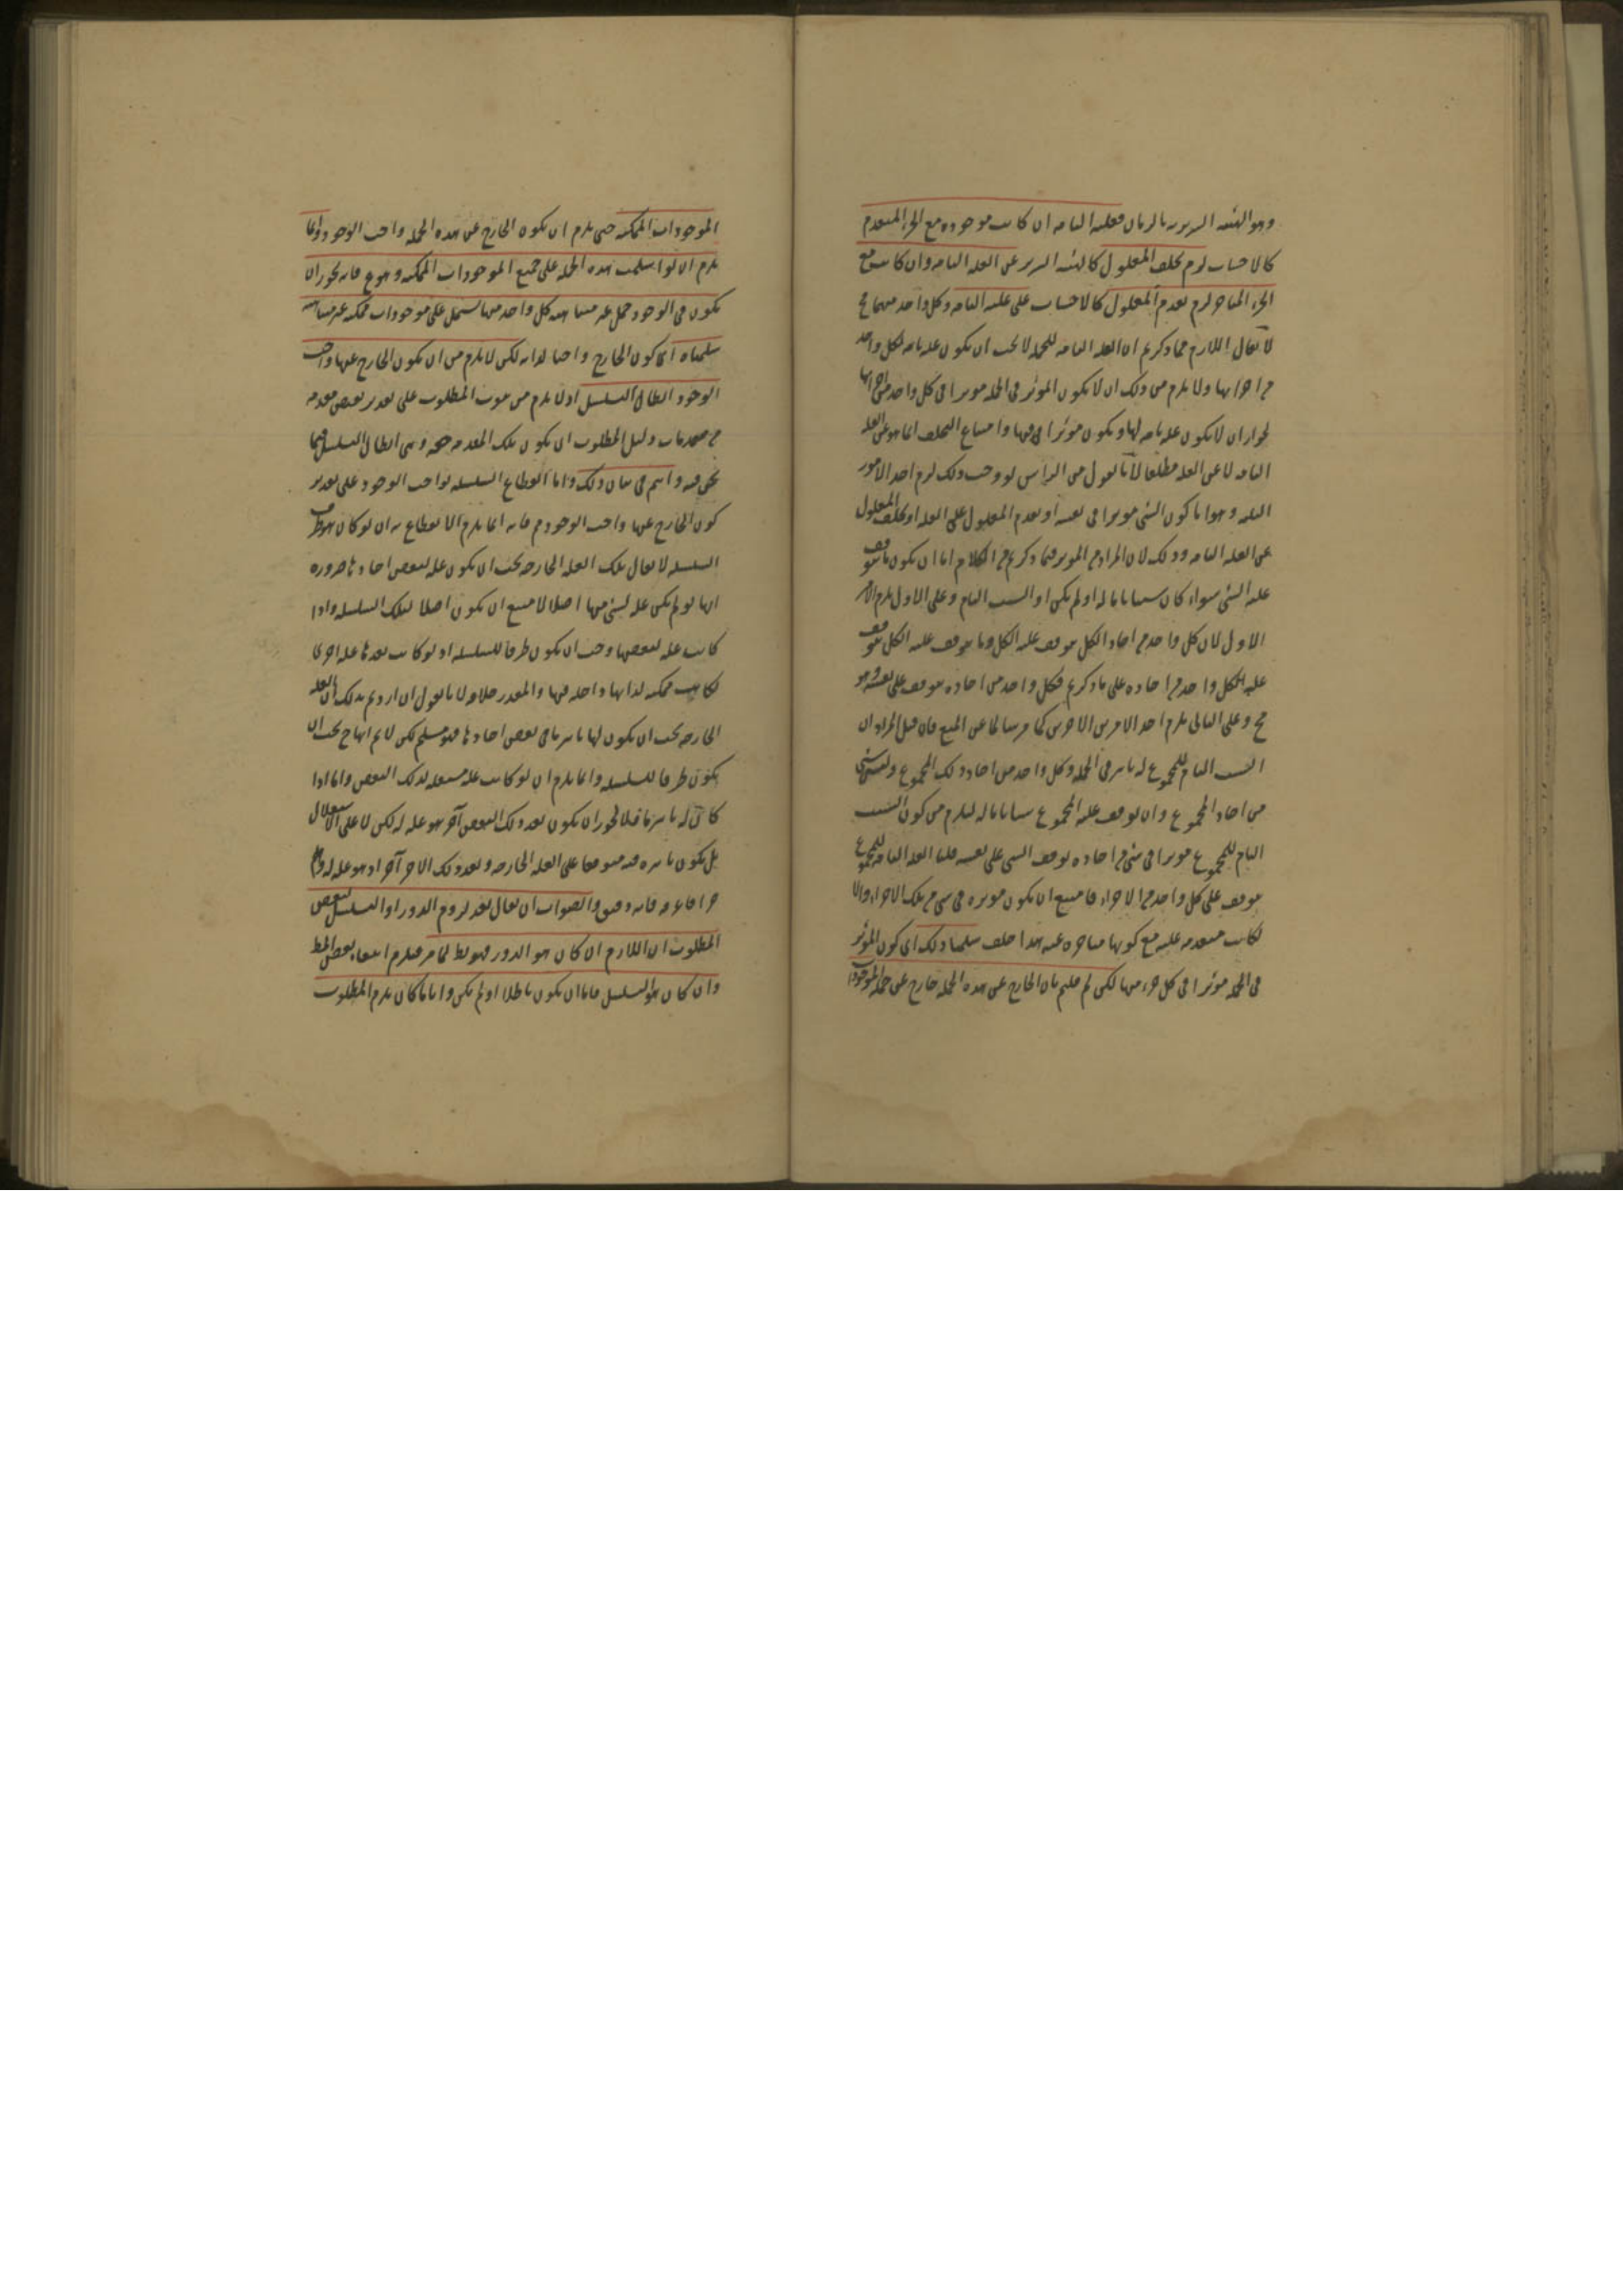 وهو الهيئة السريرية بالزمان فعلته التامة ان كانت موجودة مع الجزء المتقدم
كالاخشاب لزم تخلف المعلول كالهيئة السريرية عن العلة التامة وان كانت مع
الجزء المتاخر لزم تقدم المعلول كالاخشاب على علته التامة وكل واحد منهما مح
لا يقال اللازم مما ذكرتم ان العلة التامة للجملة لا يجب ان يكون علة تامة لكل واحد
من اجزائها ولا يلزم من ذلك ان لا يكون الموثر في الجملة موثرا في كل واحد من اجزائها
لجواز ان لا يكون علة تامة لها ويكون موثرا فيها وامتناع التخلف انما هو عن العلة
التامة لا عن العلة مطلقا لانا نقول من الراس لو وجب ذلك لزم احد الامور
الثلثة وهو اما كون الشئ موثرا في نفسه او تقدم المعلول على العلة او تخلف المعلول
عن العلة التامة وذلك لان المراد من الموثر فيما ذكرتم من الكلام اما ان يكون ما يتوقف
عليه الشئ سواء كان سببا تاما له او لم يكن او السبب التام وعلى الاول يلزم الامر
الاول لان كل واحد من احاد الكل يتوقف عليه الكل وما يتوقف عليه الكل يتوقف
عليه كل واحد من احاده على ما ذكرتم فكل واحد من احاده يتوقف على نفسه وهو
مح وعلى الثاني يلزم احد الامرين الاخرين كما مر سالما عن المنع فان قيل المراد ان
السبب التام للمجموع له تاثير في الجملة وكل واحد من احاد ذلك المجموع وليس شئ
من احاد المجموع وان توقف عليه المجموع سببا تاما له ليلزم من كون السبب
التام للمجموع موثرا في شئ من احاده توقف الشئ على نفسه قلنا العلة التامة للمجموع
يتوقف على كل واحد من الاجزاء فامتنع ان يكون موثرة في شئ من تلك الاجزاء والا
لكانت متقدمة عليه مع كونها متاخرة عنه هذا خلف سلمنا ذلك اى كون الموثر
في الجملة موثرا في كل جزء منها لكن لم قلتم بان الخارج عن هذه الجملة خارج عن جملة الموجودات
الموجودات الممكنة حتى يلزم ان يكون الخارج عن هذه الجملة واجب الوجود وانما
يلزم ان لو اشتملت هذه الجملة على جميع الموجودات الممكنة وهو مم فانه يجوز ان
يكون في الوجود جمل غير متناهية كل واحد منها يشتمل على موجودات ممكنة غير متناهية
سلمناه اى كون الخارج واجبا لذاته لكن لا يلزم من ان يكون الخارج عنها واجب
الوجود ابطال التسلسل اذ لا يلزم من ثبوت المطلوب على تقدير نقيض مقدمة
من مقدمات دليل المطلوب ان يكون تلك المقدمة حقة وهى ابطال التسلسل فيما
نحن فيه وانتم في بيان ذلك واما انقطاع السلسلة بواجب الوجود على تقدير
كون الخارج عنها واجب الوجود مم فانه انما يلزم الانقطاع به ان لو كان هو طرف
السلسلة لا يقال تلك العلة الخارجة يجب ان يكون علة لبعض احادها ضرورة
انها لو لم يكن علة لشئ منها اصلا لامتنع ان يكون اصلا لتلك السلسلة واذا
كانت علة لبعضها وجب ان يكون طرفا للسلسلة اذ لو كانت بعدها علة اخرى
لكانت ممكنة لذاتها داخلة فيها والمقدر خلافه لانا نقول ان اردتم بذلك ان العلة
الخارجة يجب ان يكون لها تاثير ما في بعض احادها فهو مسلم لكن لا نم انها ح يجب ان
يكون طرفا للسلسلة وانما يلزم ان لو كانت علة مستقلة لذلك البعض واما اذا
كان له تاثير ما فلا لجواز ان يكون بعد ذلك البعض آخر هو علة له لكن لا على الاستقلال
بل يكون تاثيره فيه متوقفا على العلة الخارجة وبعد ذلك الاخر آخر اذ هو علة له وهلم
جرا فاعرفه فانه دقيق والصواب ان يقال بعد لزوم الدور او التسلسل لنقيض
المطلوب ان اللازم ان كان هو الدور فهو بط لما مر فيلزم انتفاء نقيض المط
وان كان هو التسلسل فاما ان يكون باطلا او لم يكن واياما كان يلزم المطلوب